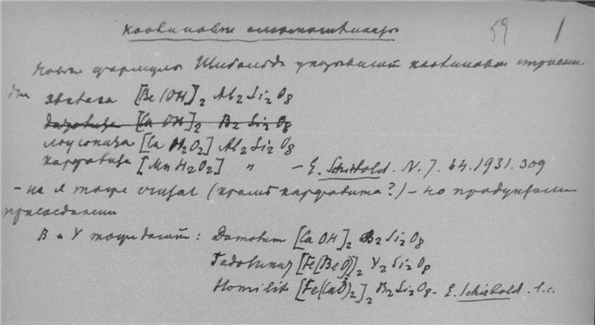 Каолиновые алюмосиликаты 59 1
Новые формулы Шибольда указывают каолиновое строение
для эвклаза [Be(OH]2 Al2Si2O8
датолита [Ca OH]2 B2 Si2 O8
лоусонита [Ca H2O2] Al2Si2O8
карфолита [Mn H2O2] " – E. Schiebold. N. J. 64. 1931. 309
– но я тоже считал (кроме карфолита?) – но продуктами
присоединения
B и Y тоже дают: Датолит [Ca OH]2 B2 Si2 O8
Гадолинит [Fe(BeO)]2 Y2 Si2 O8
Homilit [Fe(CaO)2]2 B2Si2O8 – E. Schiebold. l.c.